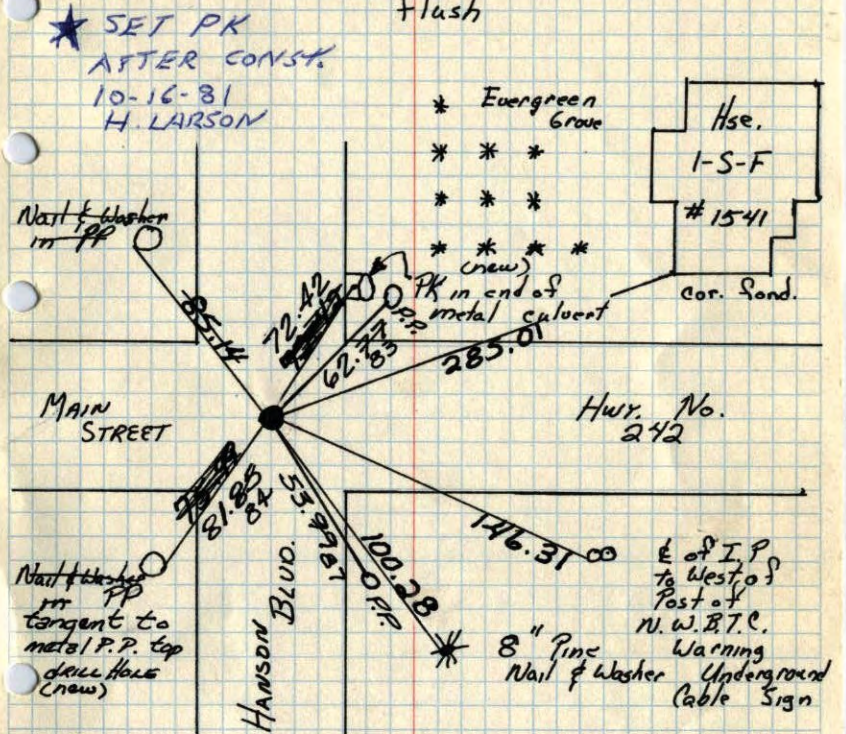 flush
★ SET PK
AFTER CONST.
10-16-81
H. LARSON
Evergreen
Grove
Hse.
1-S-F
# 1541
cor. fond.
Nail & Washer
in PP
(new)
PK in end of
metal culvert
P.P.
85.14
72.42
62.77
83
285.01
MAIN
STREET
HWY. No.
242
81.85
84
53.99
87
100.28
146.31
Nail & Washer
in PP
tangent to
metal P.P. top
DRILL HOLE
(new)
HANSON
BLVD.
P.P.
8" Pine
Nail & Washer
℄ of I.P.
to West of
Post of
N.W.B.T.C.
Warning
Underground
Cable Sign